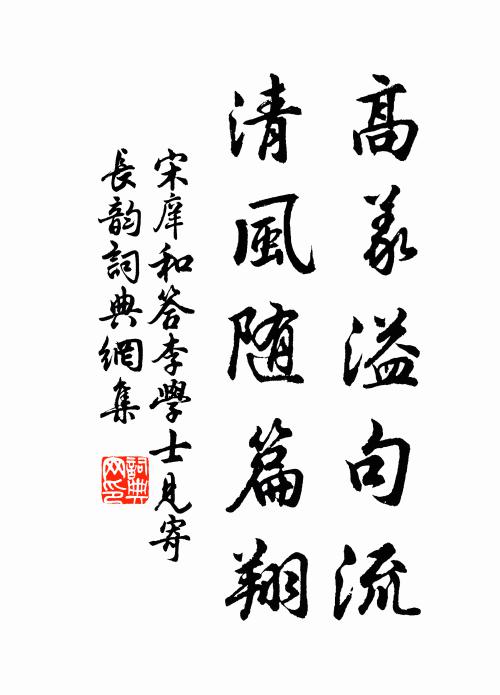 高義溢句流
清風随篇翔
宋庠和答李學士見寄
長韵詞典網集
詞典
网印